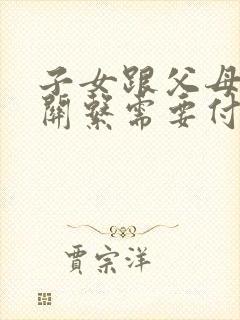 子女跟父母
關繫需要付
賈宗洋